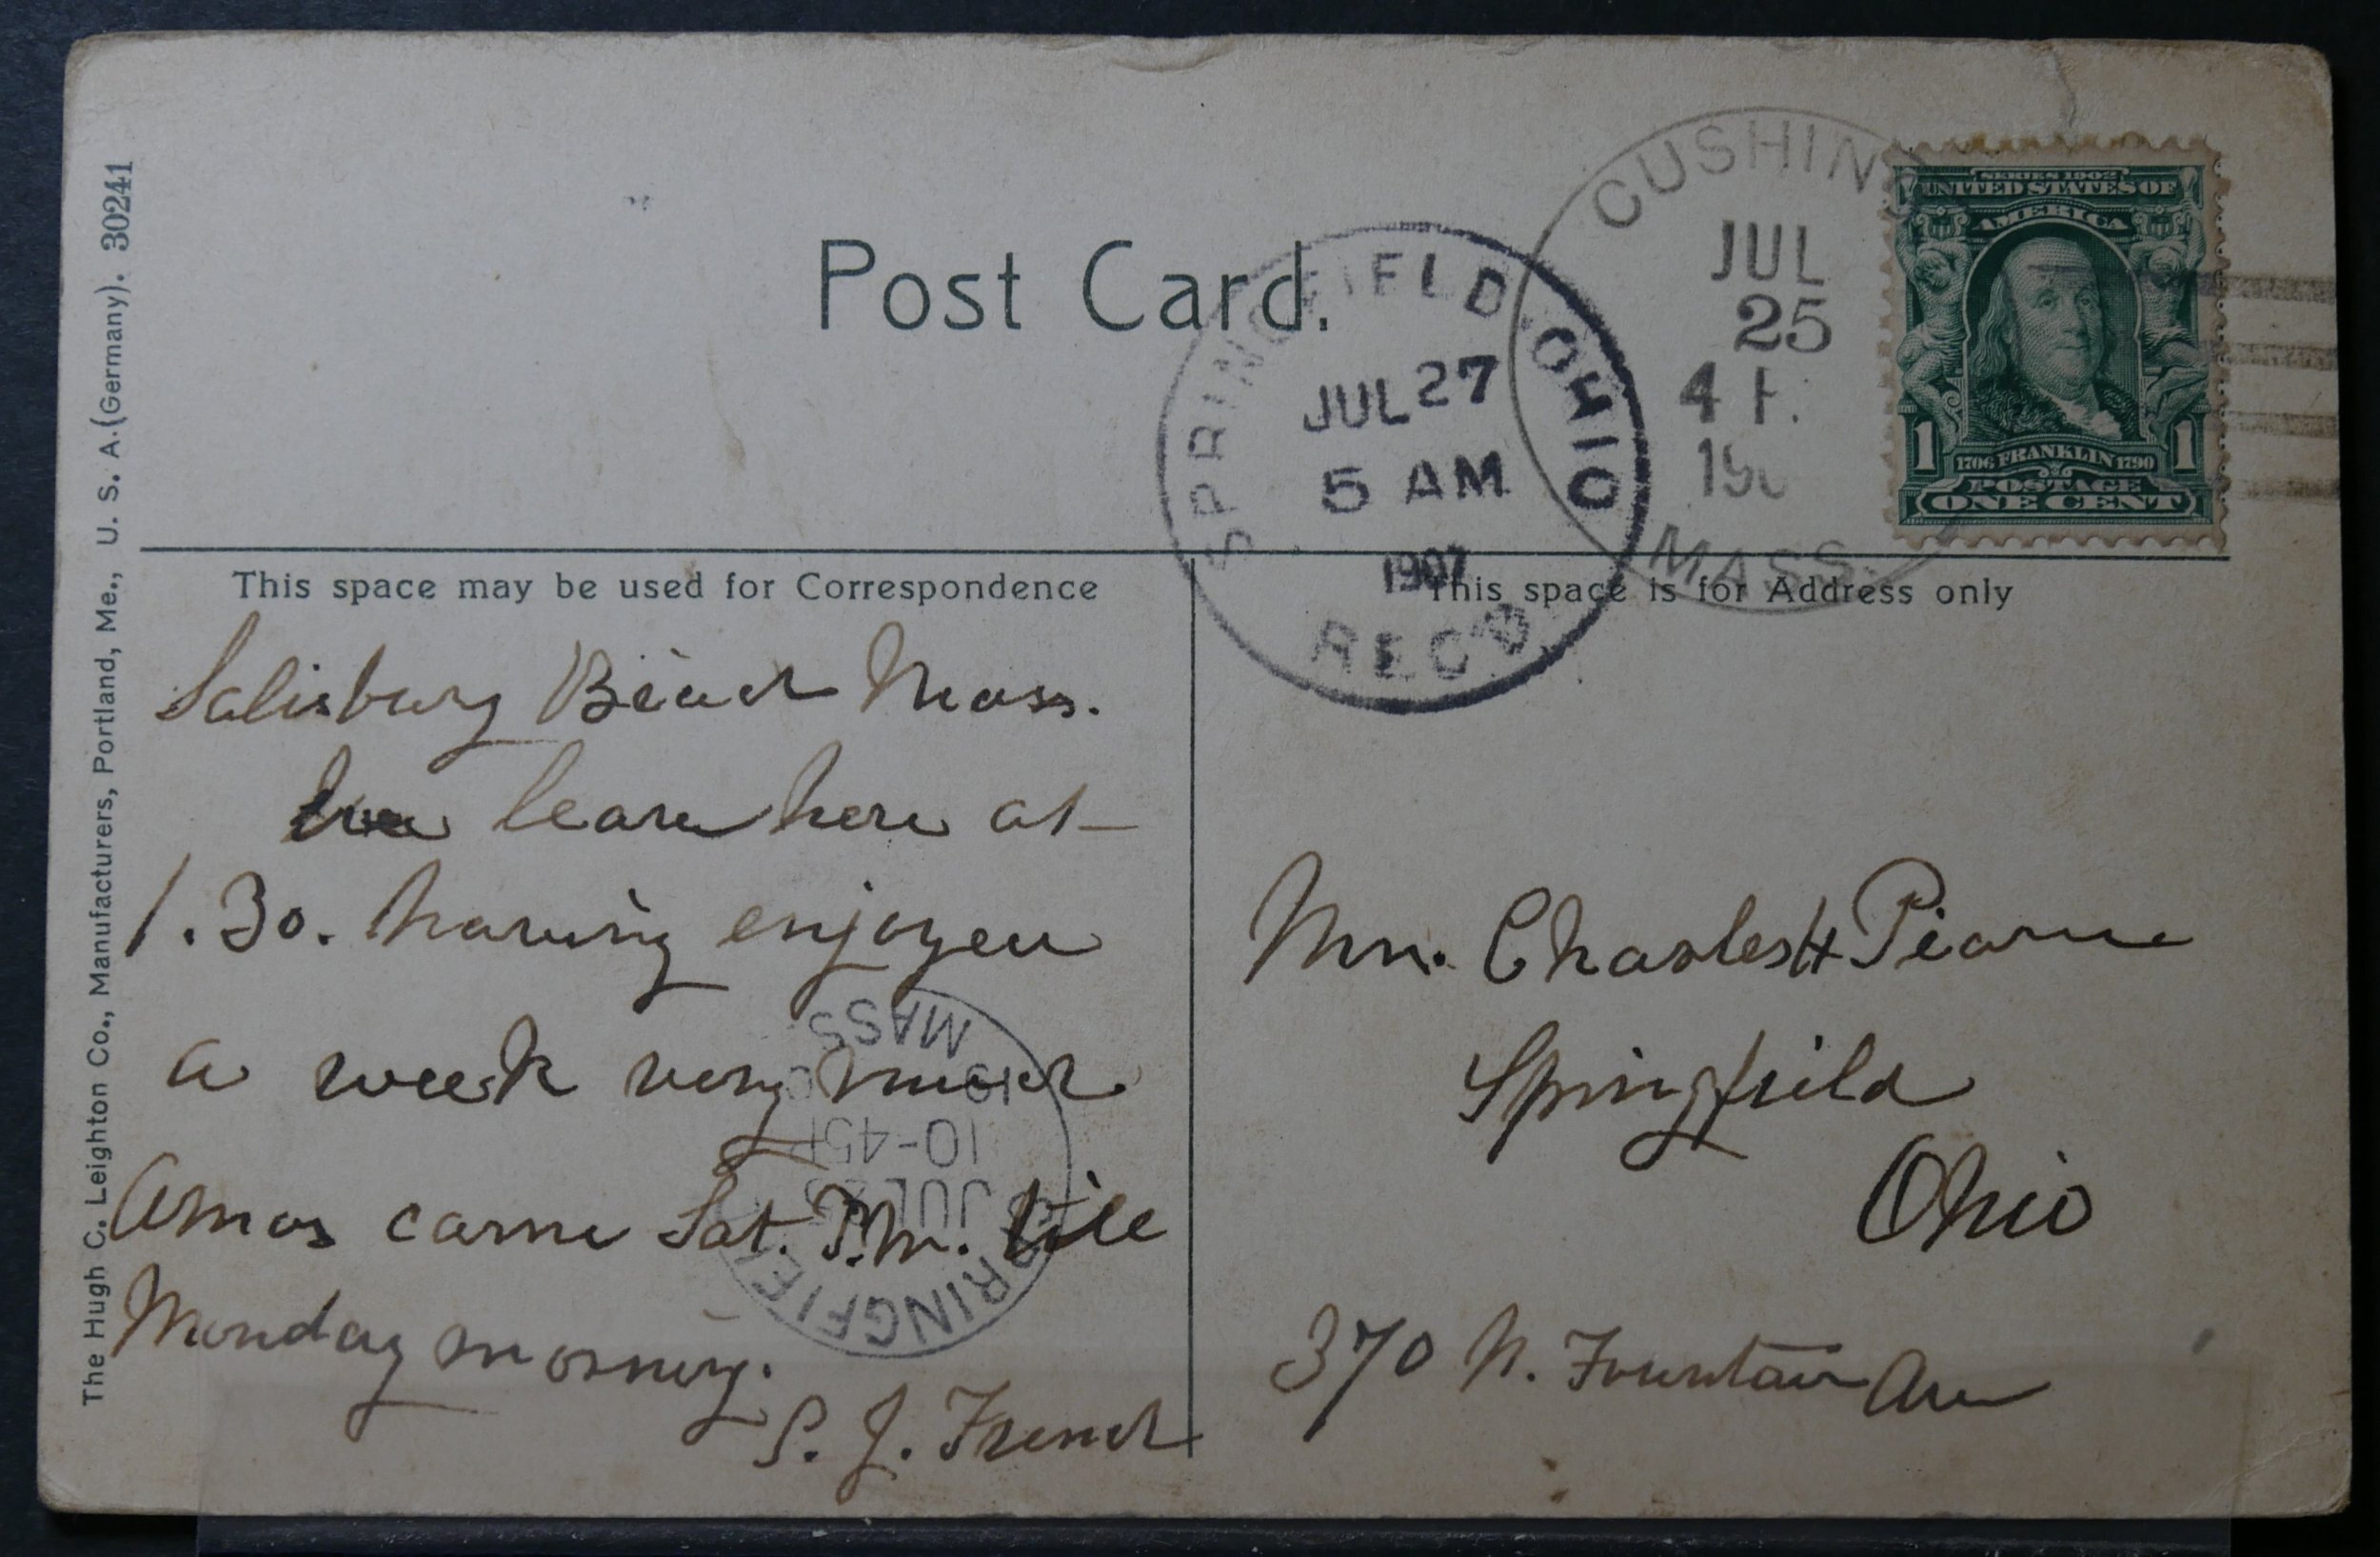 The Hugh C. Leighton Co., Manufacturers, Portland, Me., U. S. A. (Germany). 30241
Post Card.
SPRINGFIELD, OHIO
JUL 27
5 AM
1907
REC'D.
CUSHING
JUL
25
4 P.
190
MASS.
SERIES 1902
UNITED STATES OF
AMERICA
1 1
1706 FRANKLIN 1790
POSTAGE
ONE CENT
This space may be used for Correspondence
Salisbury Beach Mass.
We leave here at
1.30. having enjoyed
a week very much
Amos came Sat. P.M. till
Monday morning.
S. J. French
MASS.
19
10-45P
JUL 25
SPRINGFIEL
This space is for Address only
Mr. Charles H Pearce
Springfield
Ohio
370 N. Fountain Ave